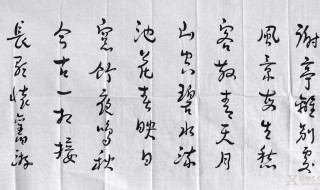 謝亭離別處
風景每生愁
客散青天月
山空碧水流
池花春映日
窗竹夜鳴秋
今古一相接
長歌懷舊遊